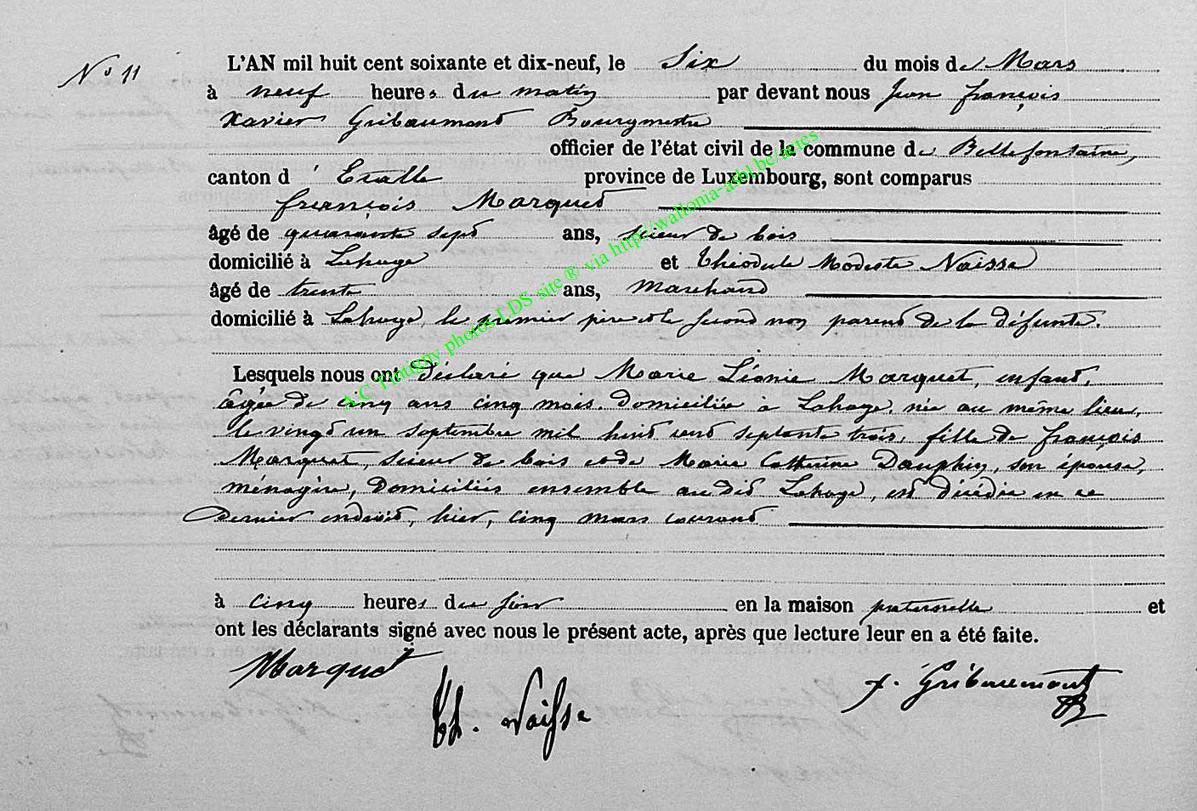 N° 11
L'AN mil huit cent soixante et dix-neuf, le Six du mois de Mars
à neuf heures du matin par devant nous Jean François
Xavier Gribaumont Bourgmestre
officier de l'état civil de la commune de Bellefontaine,
canton d'Etalle province de Luxembourg, sont comparus
François Marquet
âgé de quarante sept ans, scieur de bois
domicilié à Lahage et Théodule Modeste Naisse
âgé de trente ans, marchand
domicilié à Lahage, le premier père et le second non parent de la défunte.
Lesquels nous ont déclaré que Marie Léonie Marquet, enfant,
âgée de cinq ans cinq mois, domiciliée à Lahage, née au même lieu,
le vingt un septembre mil huit cent septante trois, fille de François
Marquet, scieur de bois et de Marie Catherine Dauphin, son épouse,
ménagère, domiciliés ensemble au dit Lahage, est décédée en ce
dernier endroit, hier, cinq mars courant
à cinq heures du soir en la maison paternelle et
ont les déclarants signé avec nous le présent acte, après que lecture leur en a été faite.
Marquet
Th. Naisse
f. Gribaumont
A.C. Tintigny photos LDS site ® via http://wallonia-asbl.be/actes